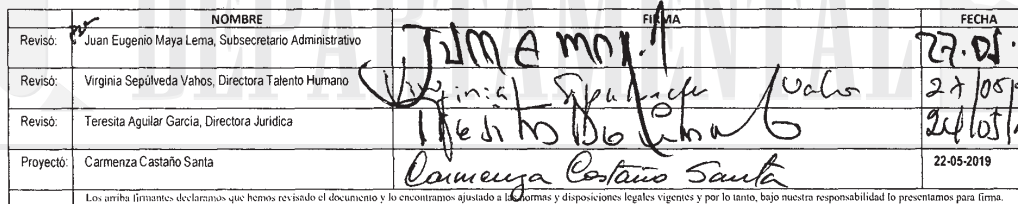 NOMBRE FIRMA FECHA
Revisó: Juan Eugenio Maya Lema, Subsecretario Administrativo
Revisó: Virginia Sepúlveda Vahos, Directora Talento Humano Virginia Sepúlveda Vahos 27/05/
Revisó: Teresita Aguilar García, Directora Jurídica 24/05/
Proyectó: Carmenza Castaño Santa Carmenza Castaño Santa 22-05-2019
Los arriba firmantes declaramos que hemos revisado el documento y lo encontramos ajustado a las normas y disposiciones legales vigentes y por lo tanto, bajo nuestra responsabilidad lo presentamos para firma.